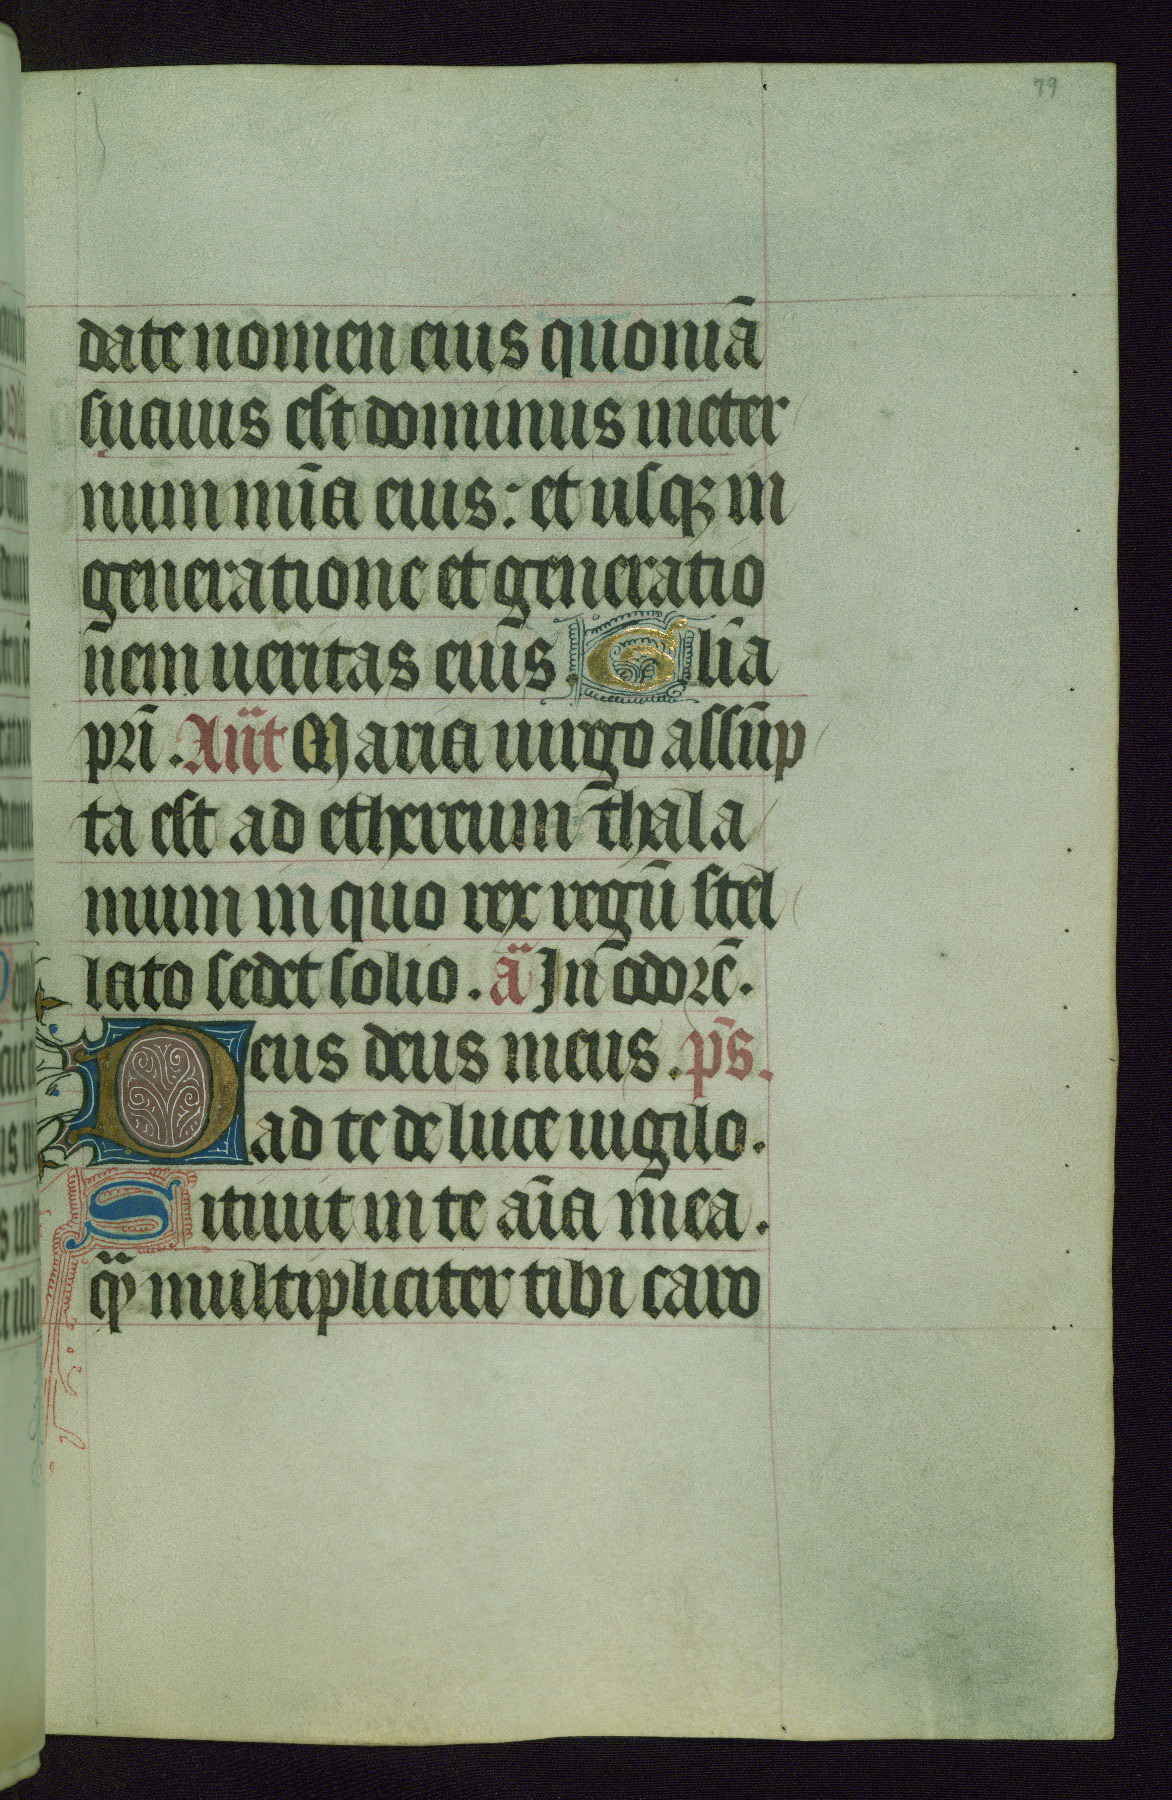 79
date nomen eius quoniā
suauis est dominus ineter
num mīa eius: et usqꝫ in
generatione et generatio
nem ueritas eius. Glīa
pri̅. An̅t Maria uirgo assūp
ta est ad ethereum thala
mum in quo rex regū stel
lato sedet solio. a̅ In odorē.
Deus deus meus. ps̅.
ad te de luce uigilo.
Sitiuit in te aīa mea.
qȝ multipliciter tibi caro